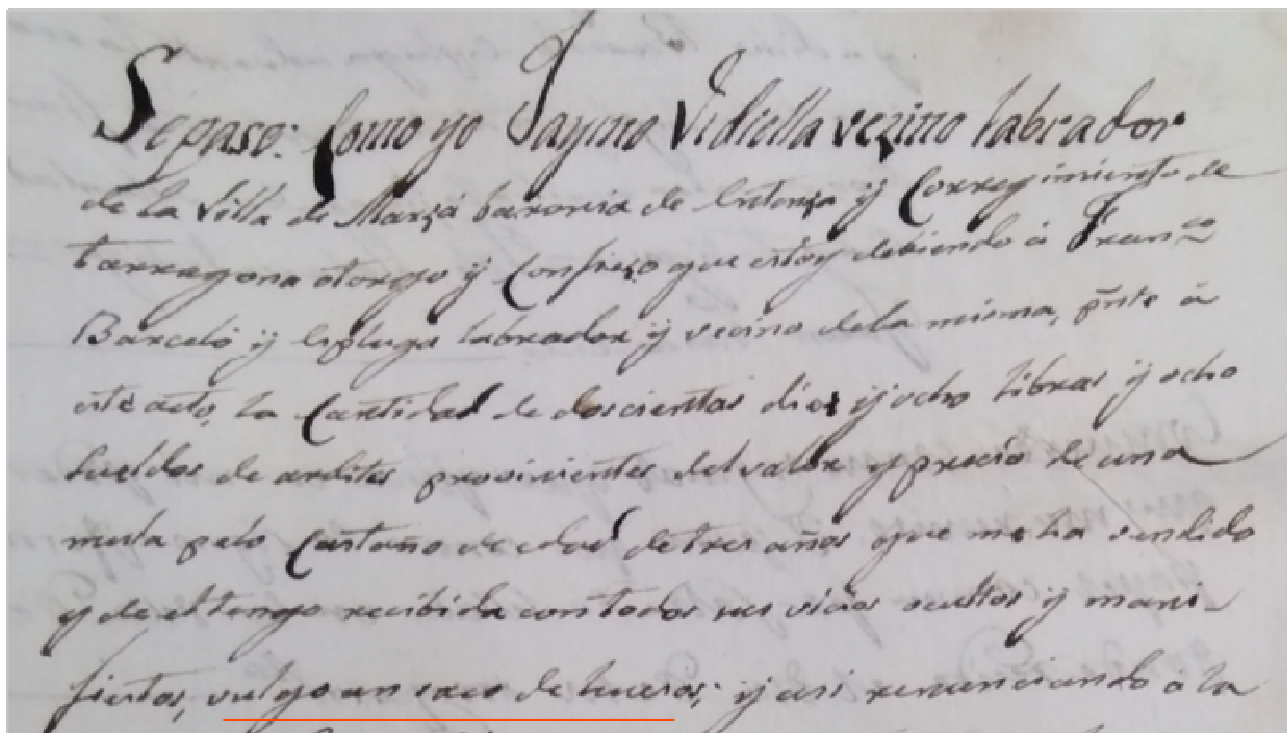 Sepase: Como yo Jayme Vidiella vezino labrador
de la Villa de Marsá baronia de Entenza y Corregimiento de
Tarragona otorgo y Confieso que estoy debiendo á Franco
Barceló y Espluga labrador y vecino dela misma, pñte á
este acto, la Cantidad de doscientas diez y ocho libras y ocho
sueldos de ardites provinientes del valor y precio de una
mula pelo Castaño de edad de tres años que me ha vendido
y de el tengo recibida con todos sus vicios ocultos y mani-
fiestos, vulgo un saco de huesos; y asi renunciando á la